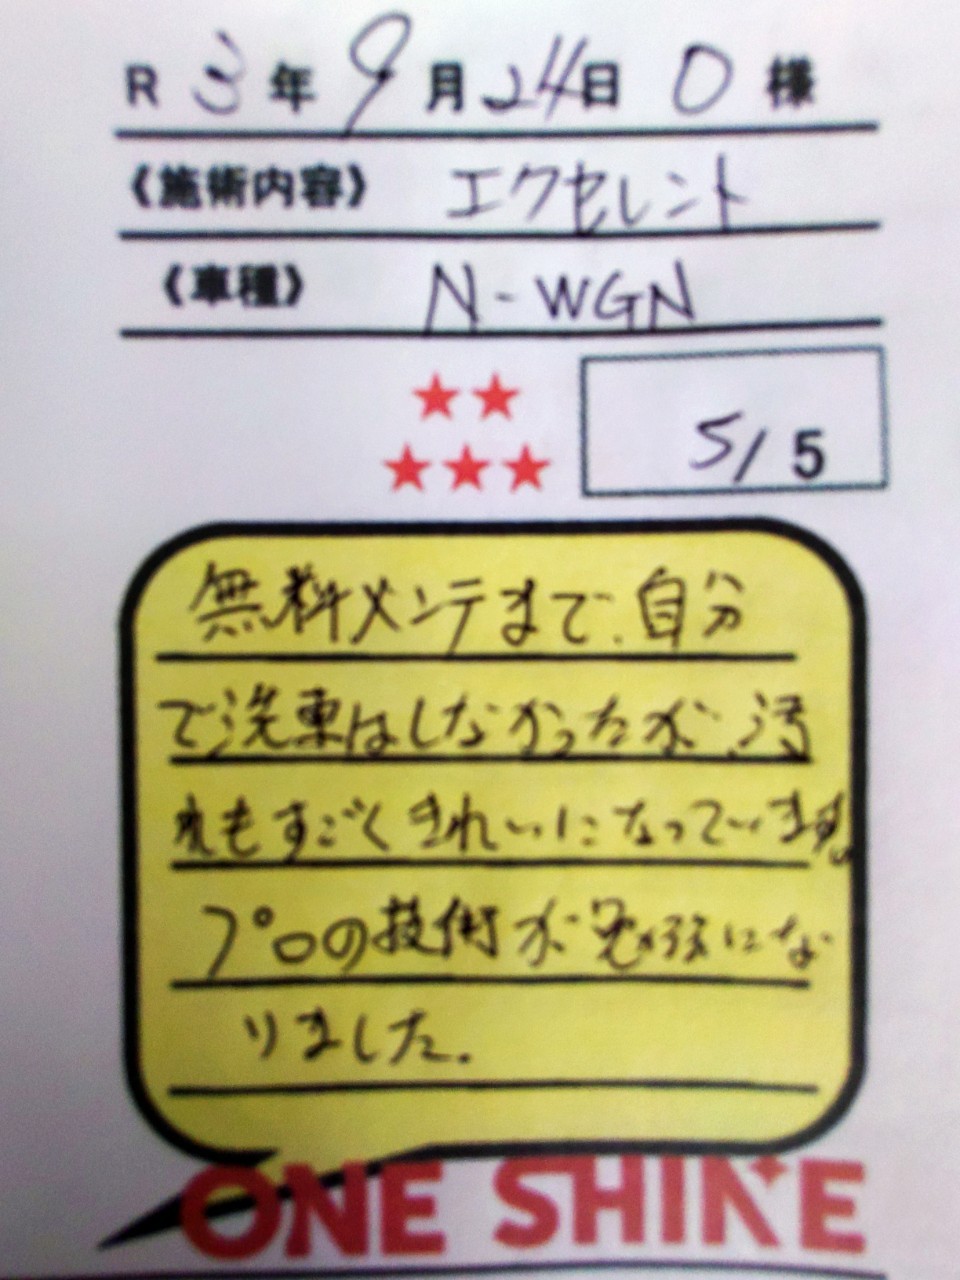 R 3年 9月24日 O 様
《施術内容》 エクセレント
《車種》 N-WGN
5/5
無料メンテまで、自分
で洗車はしなかったが、汚
れもすごくきれいになっています。
プロの技術が勉強にな
りました。
ONE SHINE